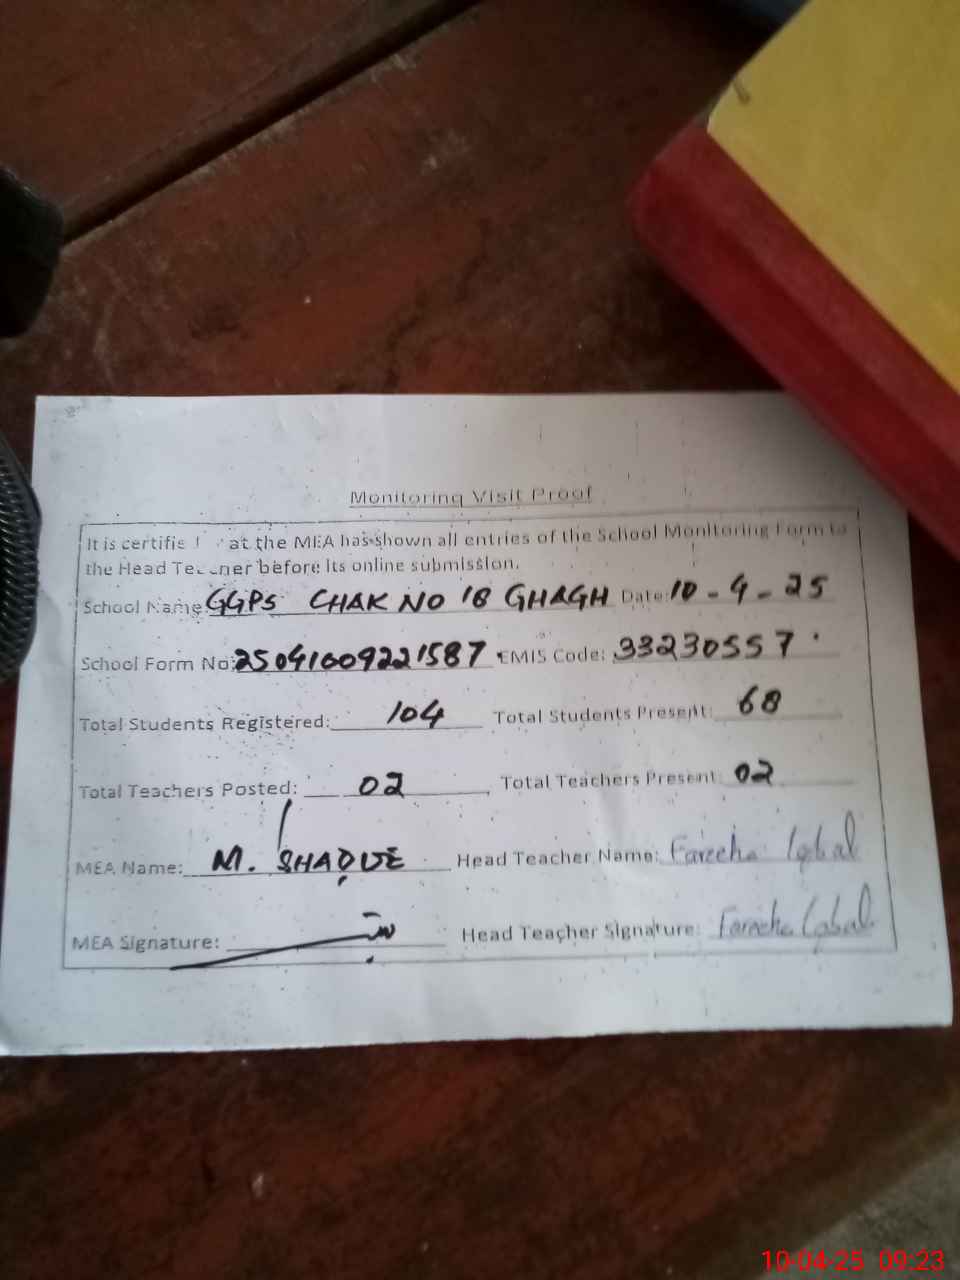 Monitoring Visit Proof
It is certified that the MEA has shown all entries of the School Monitoring Form to
the Head Teacher before its online submission.
School Name: GGPS CHAK NO 18 GHAGH Date: 10-4-25
School Form No: 25041609221587 EMIS Code: 33230557
Total Students Registered: 104 Total Students Present: 68
Total Teachers Posted: 02 Total Teachers Present: 02
MEA Name: M. Head Teacher Name: Fareeha Iqbal
MEA Signature: Head Teacher Signature: Fareeha Iqbal
10-04-25 09:23